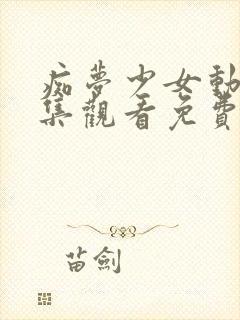 痴夢少女動
集觀看免費
苗劍